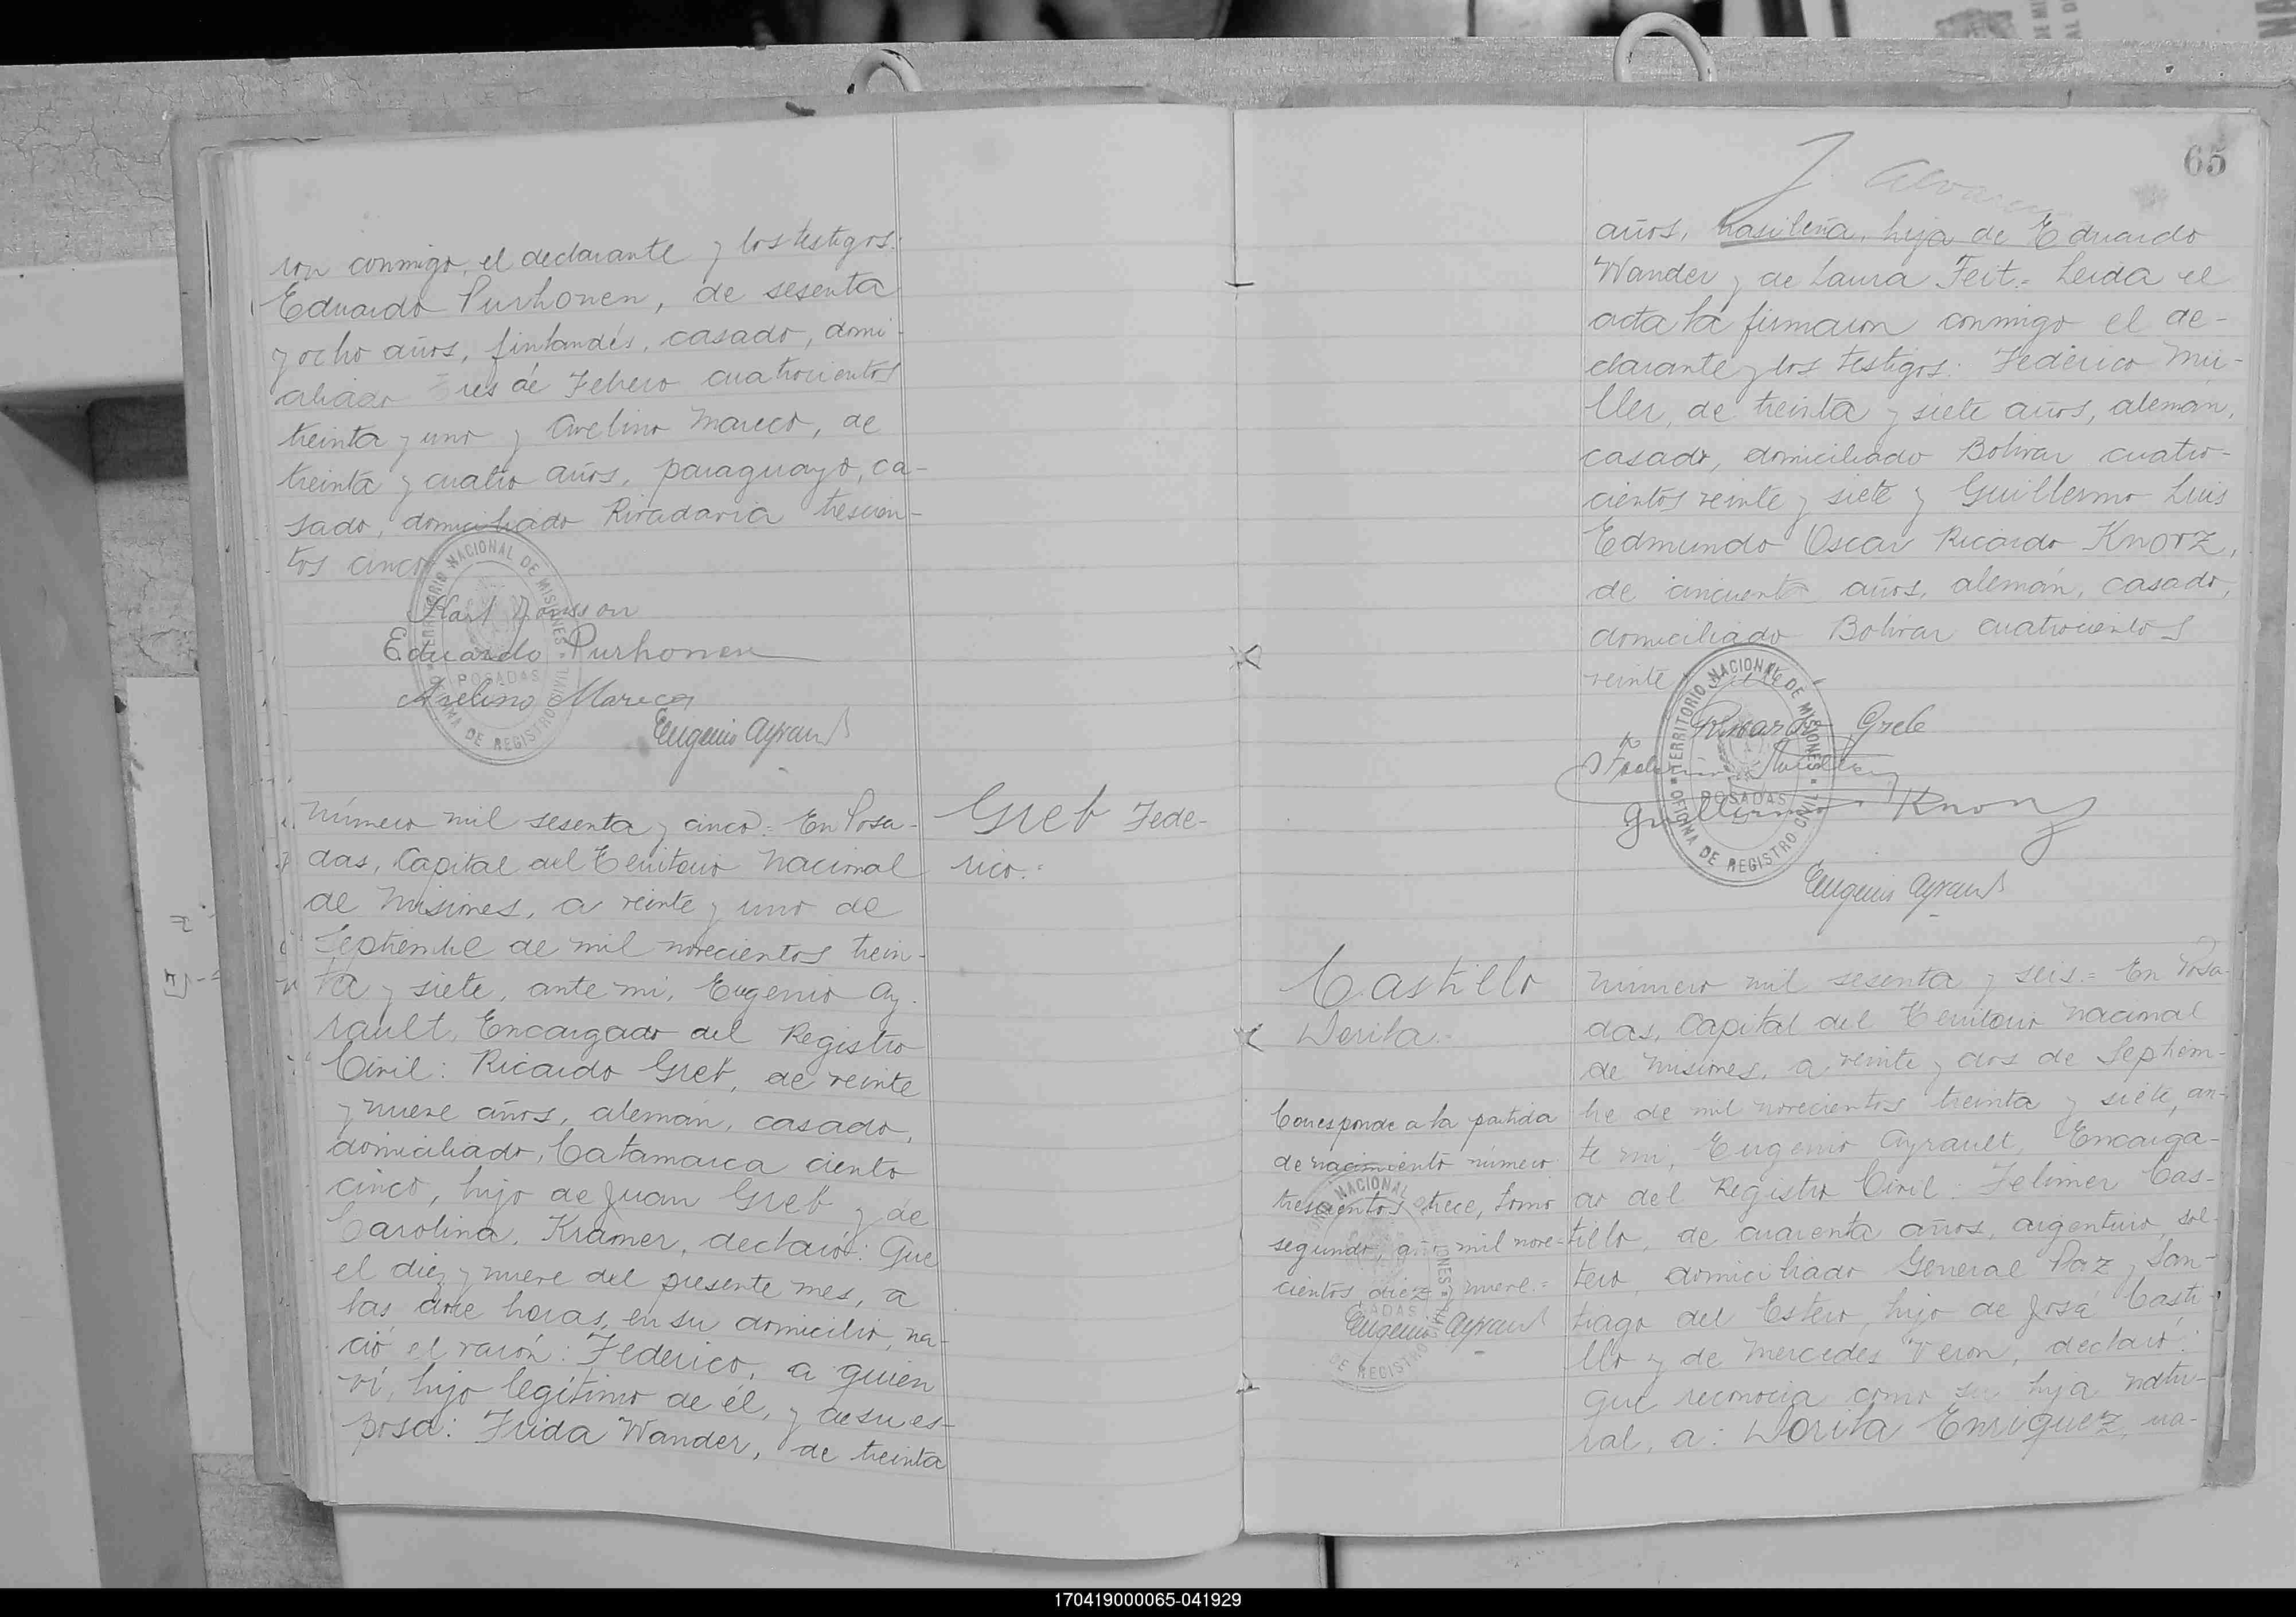 ron conmigo, el declarante y los testigos:
Eduardo Purhonen, de sesenta
y ocho años, finlandés, casado, domi-
ciliado Tres de Febrero cuatrocientos
treinta y uno y Avelino Mareco, de
treinta y cuatro años, paraguayo, ca-
sado, domiciliado Rivadavia trescien-
tos cinco
Eduardo Purhonen
Avelino Mareco
Eugenio Ayrault
TERRITORIO NACIONAL DE MISIONES
POSADAS
OFICINA DE REGISTRO CIVIL
Greb Fede-
rico.=
Número mil sesenta y cinco.= En Posa-
das, Capital del Territorio Nacional
de Misiones, a veinte y uno de
Septiembre de mil novecientos trein-
ta y siete, ante mi, Eugenio Ay-
rault, Encargado del Registro
Civil: Ricardo Greb, de veinte
y nueve años, alemán, casado,
domiciliado, Catamarca ciento
cinco, hijo de Juan Greb y de
Carolina Kramer, declaró: Que
el diez y nueve del presente mes, a
las doce horas, en su domicilio, na-
ció el varón: Federico, a quien
ví, hijo legítimo de él, y de su es-
posa: Frida Wander, de treinta
65
años, brasileña, hija de Eduardo
Wander y de Laura Feit.= Leida el
acta la firmaron conmigo el de-
clarante y los testigos: Federico Mü-
ller, de treinta y siete años, alemán,
casado, domiciliado Bolivar cuatro-
cientos veinte y siete y Guillermo Luis
Edmundo Oscar Ricardo Knorz,
de cincuenta años, alemán, casado,
domiciliado Bolivar cuatrocientos
veinte y siete
Ricardo Greb
Guillermo Knorz
Eugenio Ayrault
TERRITORIO NACIONAL DE MISIONES
POSADAS
OFICINA DE REGISTRO CIVIL
Castillo
Dorila.
Corresponde a la partida
de nacimiento número
trescientos trece, tomo
segundo, año mil nove=
cientos diez y nueve.=
Eugenio Ayrault
Número mil sesenta y seis.= En Posa-
das, Capital del Territorio Nacional
de Misiones, a veinte y dos de Septiem-
bre de mil novecientos treinta y siete, an-
te mi, Eugenio Ayrault, Encarga-
do del Registro Civil: Felimer Cas-
tillo, de cuarenta años, argentino, sol-
tero, domiciliado General Paz y San-
tiago del Estero, hijo de José Casti-
llo y de Mercedes Veron, declaró:
que reconocía como su hija natu-
ral, a: Dorila Enriquez, na-
170419000065-041929